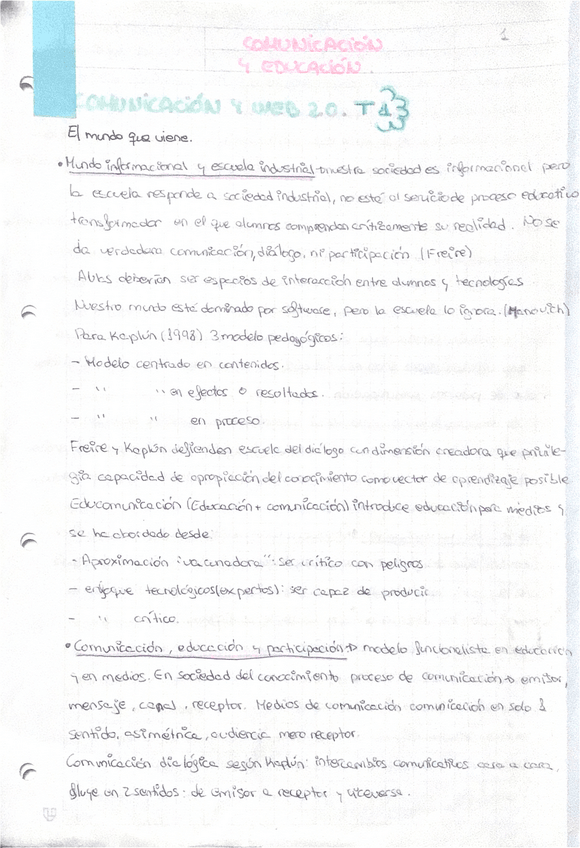 1
COMUNICACIÓN
Y EDUCACIÓN.
COMUNICACIÓN Y WEB 2.0. T1
El mundo que viene.
• Mundo informacional y escuela industrial → nuestra sociedad es informacional pero
la escuela responde a sociedad industrial, no está al servicio de proceso educativo
transformador en el que alumnos comprendan críticamente su realidad. No se
da verdadera comunicación, diálogo, ni participación. (Freire)
Aulas deberían ser espacios de interacción entre alumnos y tecnologías
Nuestro mundo está dominado por software, pero la escuela lo ignora. (Manovich)
Para Kaplún (1998) 3 modelo pedagógicos:
- Modelo centrado en contenidos.
- " " en efectos o resultados.
- " " en proceso.
Freire y Kaplún defienden escuela del diálogo con dimensión creadora que privile-
gia capacidad de apropiación del conocimiento como vector de aprendizaje posible
Educomunicación (Educación + comunicación) introduce educación para medios y
se ha abordado desde:
- Aproximación "vacunadora": ser crítico con peligros
- enfoque tecnológicos (expertos): ser capaz de producir
- " crítico.
• Comunicación, educación y participación → modelo funcionalista en educación
y en medios. En sociedad del conocimiento proceso de comunicación → emisor,
mensaje, canal, receptor. Medios de comunicación comunicación en solo 1
sentido, asimétrica, audiencia mero receptor.
Comunicación dialógica según Kaplún: intercambios comunicativos cara a cara,
fluye en 2 sentidos: de emisor a receptor y viceversa.